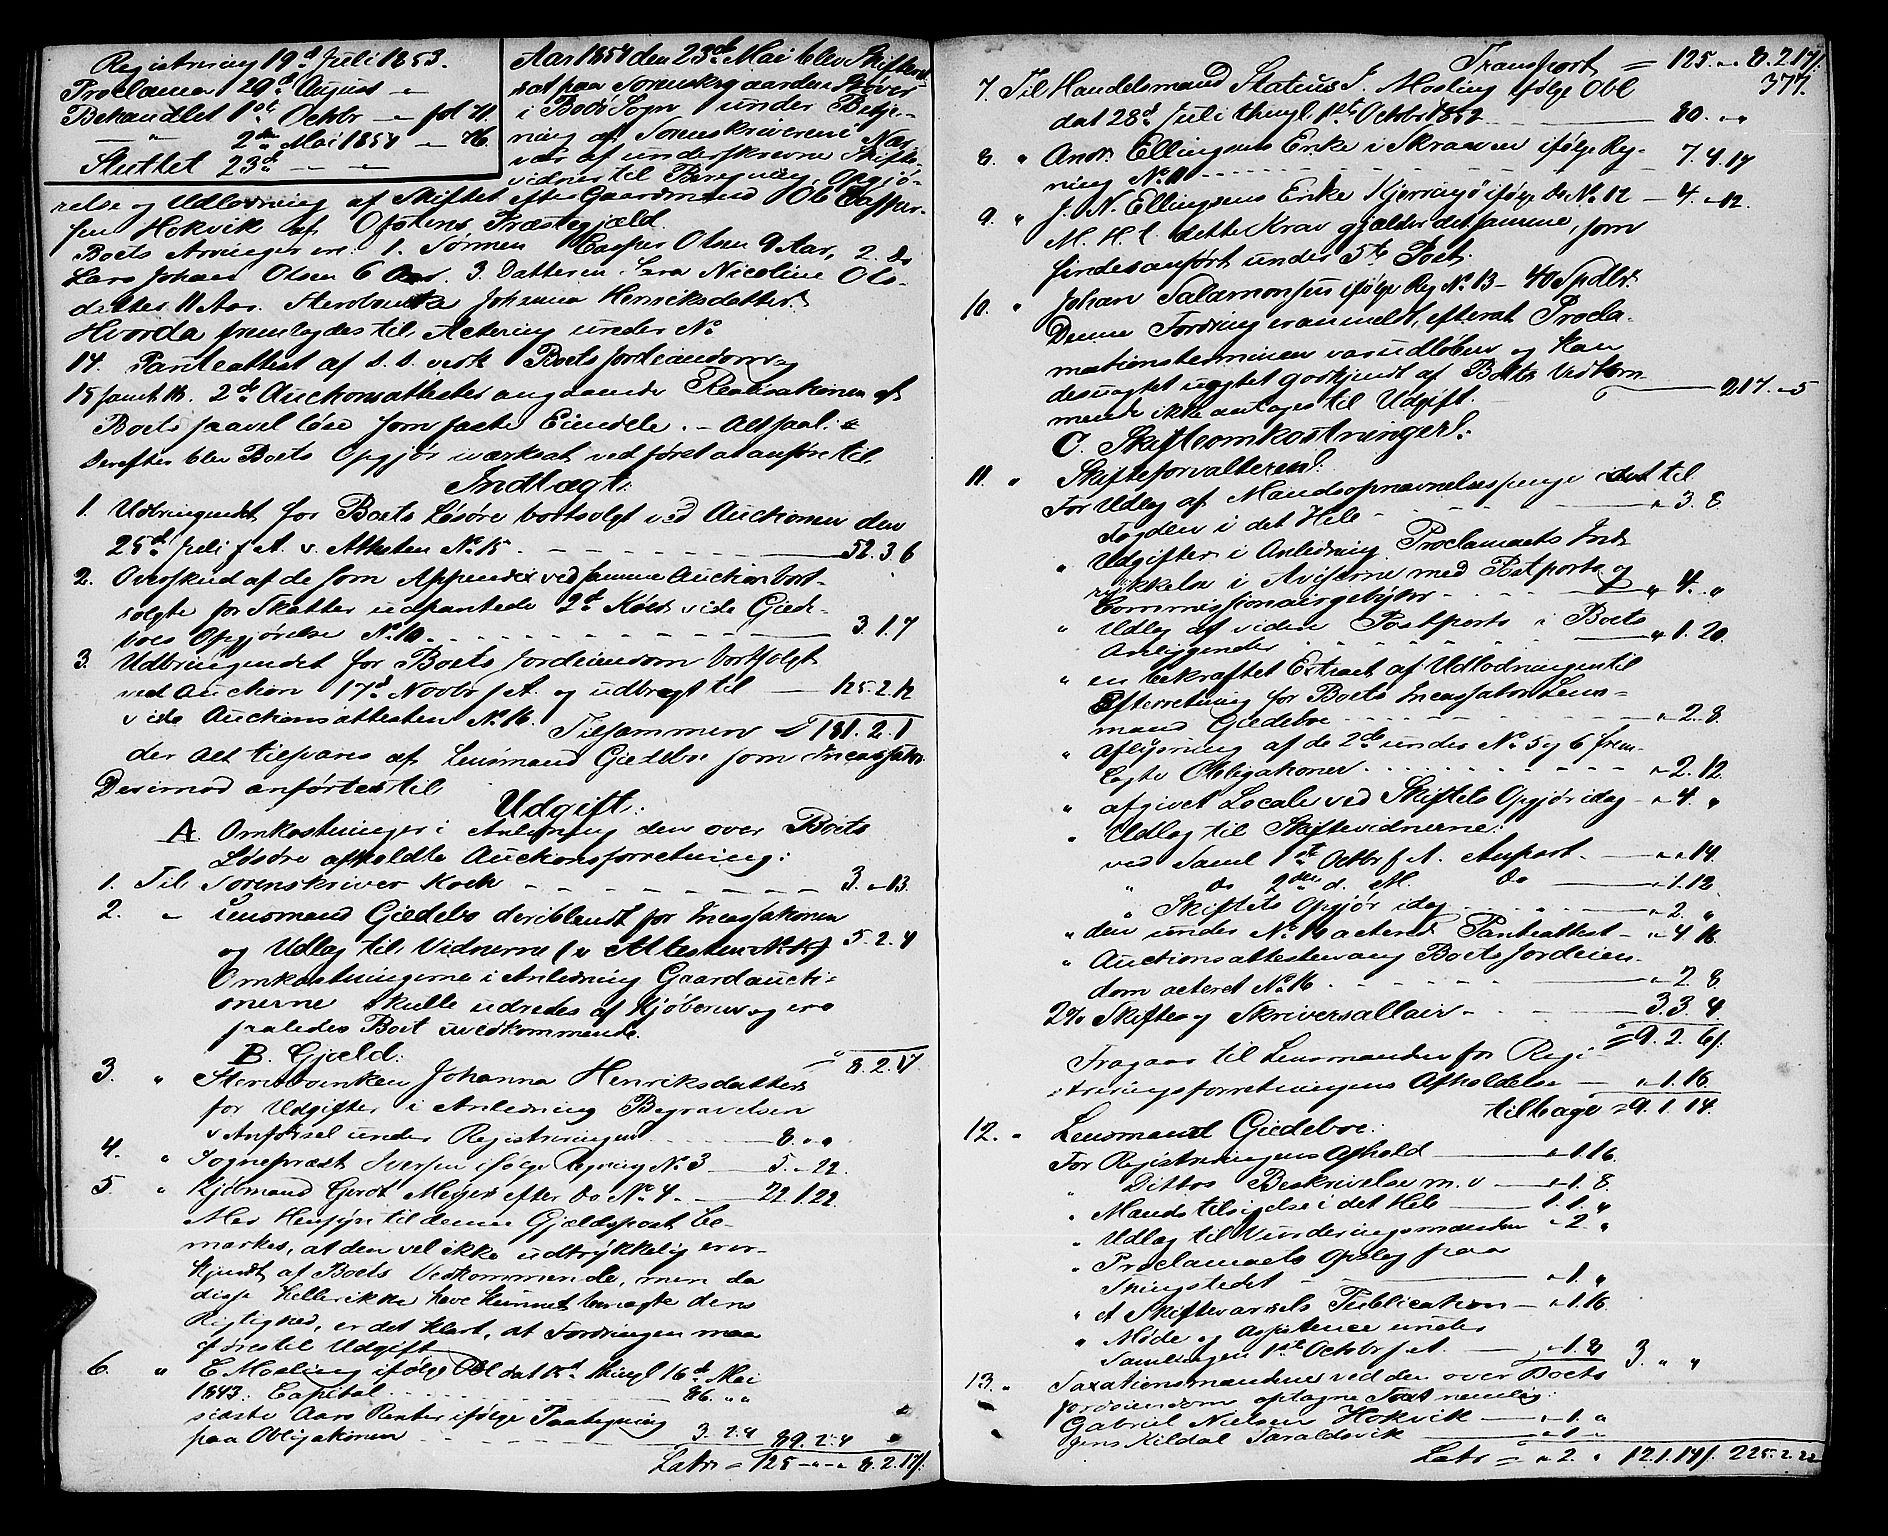 Registrering 19d Juli 1853.
Proclama 29d August "
Behandlet 1ste Octbr " fol 71.
" 2den Mai 1854 " 76.
Sluttet 23d " "
Aar 1854 den 23de Mai blev Skifteret
sat paa Sorenskrivergaarden
i Bodø Sogn under Betje-
ning af Sorenskriveren i Nær-
vær af underskrevne Skifte-
vidner til Beregning, Opgjø-
relse og Udlodning af Skiftet efter Gaardmand Ole Casper-
sen Hokvik af Ofotens Præstegjæld.
Boets Arvinger ere: 1. Sønnen Casper Olsen 9 Aar, 2. Do
Lars Johan Olsen 6 Aar. 3. Datteren Sara Nicoline Ols-
datter 11 Aar. Sterbenke Johanna Henriksdatter.
Hvorda fremlagdes til Actering under No
14. Panteattest af d. D. vedk Boets Jordeiendom og
15 samt 16. 2de Auctionsattester angaaende Realisationen af
Boets saavel løse som faste Eiendele. - Altsaal.
Derefter blev Boets Opgjør iværksat ved først at anføre til
Indtægt:
1. Udbringendet for Boets Løsøre bortsolgt ved Auctionen den
25d Juli f. A. v. Attesten No 15. 52. 3. 6
2. Overskud af de som Appendix ved samme Auction bort-
solgte for Skatter udpantede 2de Køer vide Giæde-
boes Opgjørelse No 10. 3. 1. 7
3. Udbringendet for Boets Jordeiendom bortsolgt
ved Auction 17d Novbr f. A. og udbragt til 125. 2. 12
vide Auctionsattesten No 16. Tilsammen 181. 2. 1
der Alt tilsvares af Lensmand Giædebo som Incassator
Derimod anførtes til
Udgift:
A. Omkostninger i Anledning den over Boets
Løsøre afholdte Auctionsforretning:
1. Til Sorenskriver Koch 3. " 13.
2. " Lensmand Giædebo deriblandt for Incassationen
og Udlæg til Vidnerne (v Attesten No 15) 5. 2. 4
Omkostningerne i Anledning Gaardaucti-
onerne skulle udredes af Kjøberen og ere
saaledes Boet uvedkommende.
8. 2. 17
B. Gjæld:
3. " Sterbenken Johanna Henriksdatter
for Udgifter i Anledning Begravelsen
v Anførsel under Registreringen 8. " "
4. " Sogneprest Iversen ifølge Regning No 3 5. " 22.
5. " Kjøbmand Gerdt Meyer efter Do No 4. 22. 1. 22.
Med Hensyn til denne Gjældspost be-
mærkes, at den vel ikke udtrykkelig er er-
kjendt af Boets Vedkommende, men da
disse heller ikke have kunnet benægte dens
Rigtighed, er det klart, at Fordringen maa
føres til Udgift
6. " E Mosling ifølge Obl dat 15d thingl 16d Mai
1843. Capital 86. " "
sidste Aars Renter ifølge Paategning
paa Obligationen 3. 2. 4 89. 2. 4
Latr = 125 " " 8. 2. 17/.
Transport = 125. " " 8. 2. 17/.
377.
7. Til Handelsmand Statius J. Mosling ifølge Obl
dat 28d Juli thingl 1ste Octbr 1852 80. " "
8. " Andr. Ellingsens Enke i Skraaven ifølge Reg-
ning No 11 7. 4. 17
9. " J. N. Ellingsens Enke Kjerringø ifølge Do No 12 4. " 12.
M. H. t. dette Krav gjælder det samme, som
findes anført under 5te Post.
10. " Johan Salamonsen ifølge Reg No 13 - 40 Spdlr.
Denne Fordring er anmeldt, efterat Procla-
mationsterminen var udløben og kan
desuagtet uagtet godkjendt af Boets Vedkom-
mende ikke antages til Udgift. 217. " 5
C. Skifteomkostninger:
11. " Skifteforvalteren:
For Udlæg af Mandsopnævnelsespenge idet til
Fogden i det Hele " 3. 8.
" Udgifter i Anledning Proclamaets Ind-
rykkelse i Aviserne med Postporto og
Commissionairgebyhr " 4. "
" Udlæg af videre Postporto i Boets
Anliggender " 1. 20.
" en bekræftet Extract af Udlodningen til
Efterretning for Boets Incassator Lens-
mand Giædeboe " 2. 8.
" Aflysning af de 2de under No 5 og 6 frem-
lagte Obligationer " 2. 12.
" afgivet Locale ved Skiftets Opgjør idag " 4. "
" Udlæg til Skiftevidnerne:
ved Saml 1ste Octbr f. A. Anpart. " " 14.
" Do 2den d. M. Do " 1. 12
" Skiftets Opgjør idag " 2. "
" den under No 14 acterede Panteattest " 4 16.
" Auctionsattesten ang Boets Jordeien-
dom acteret No 16 " 2. 8.
2% Skifte og Skriversallair 3. 3. 4
9. 2. 6/.
Fragaar til Lensmanden for Regi-
streringsforretningens Afholdelse " 1. 16
tilbage = 9. 1. 14.
12. " Lensmand Giædeboe:
For Registreringens Afhold " 1. 16.
" Dittos Beskrivelse m. v " 1. 8.
" Mandstilsigelse i det Hele 1. 1. "
" Udlæg til Vurderingsmænden " 2 "
" Proclamaets Opslag paa
Thingstedet " 1. "
" et Skiftevarsels Publication " 1. 16.
" Møde og Assistence under
Samlingen 1ste Octbr f. A. 3. " "
13. " Taxationsmændene ved den over Boets
Jordeiendom optagne Taxt nemlig:
Gabriel Nielsen Hokvik " 1. "
Jens Kildal Taraldsvik " 1. "
Latr = " 2. " 12. 1. 14/. 225. 2. 22